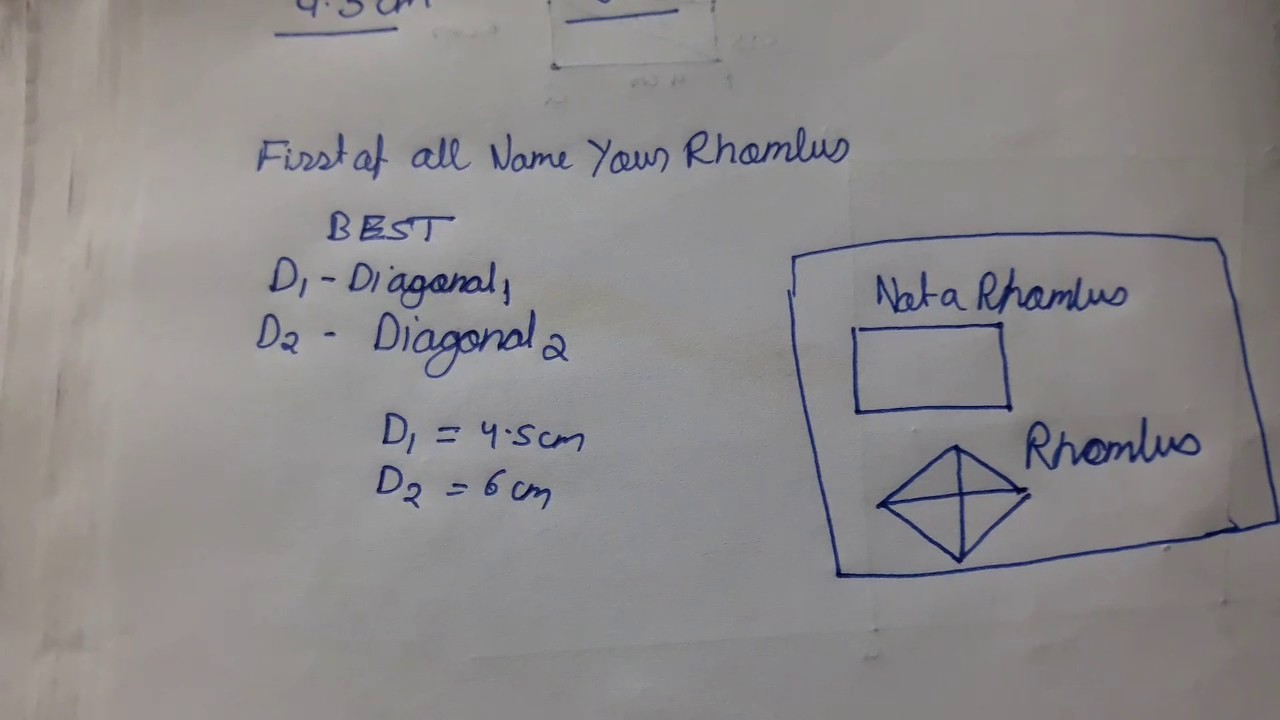 4.5cm
First of all Name Your Rhombus
BEST
D1 - Diagonal1
D2 - Diagonal2
D1 = 4.5cm
D2 = 6cm
Not a Rhombus
Rhombus